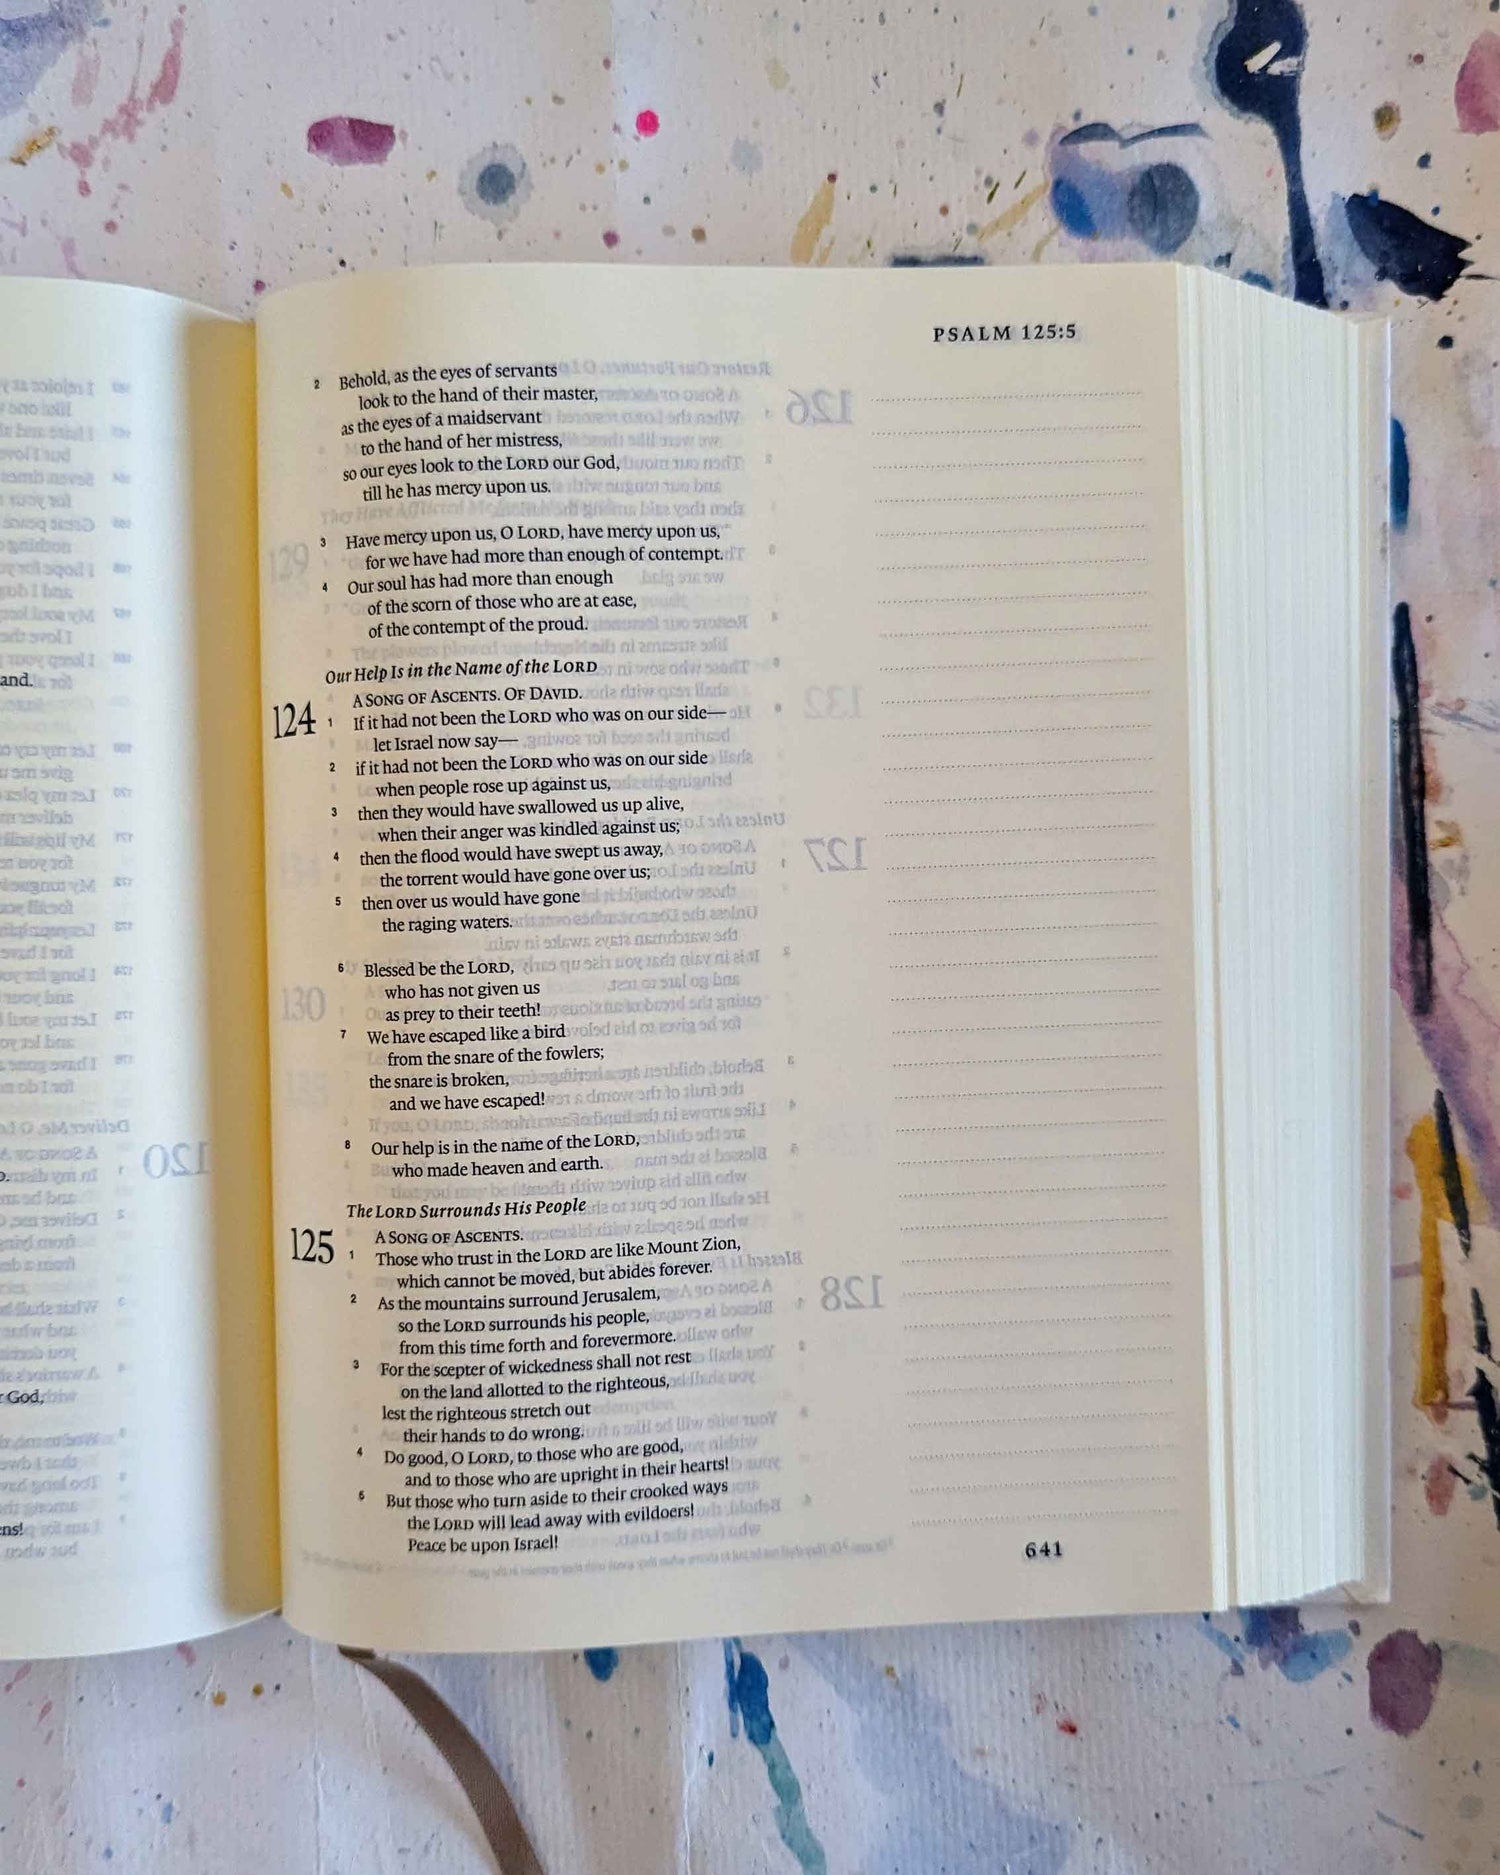 PSALM 125:5
2 Behold, as the eyes of servants
look to the hand of their master,
as the eyes of a maidservant
to the hand of her mistress,
so our eyes look to the LORD our God,
till he has mercy upon us.
3 Have mercy upon us, O LORD, have mercy upon us,
for we have had more than enough of contempt.
4 Our soul has had more than enough
of the scorn of those who are at ease,
of the contempt of the proud.
Our Help Is in the Name of the LORD
A SONG OF ASCENTS. OF DAVID.
124 1 If it had not been the LORD who was on our side—
let Israel now say—
2 if it had not been the LORD who was on our side
when people rose up against us,
3 then they would have swallowed us up alive,
when their anger was kindled against us;
4 then the flood would have swept us away,
the torrent would have gone over us;
5 then over us would have gone
the raging waters.
6 Blessed be the LORD,
who has not given us
as prey to their teeth!
7 We have escaped like a bird
from the snare of the fowlers;
the snare is broken,
and we have escaped!
8 Our help is in the name of the LORD,
who made heaven and earth.
The LORD Surrounds His People
A SONG OF ASCENTS.
125 1 Those who trust in the LORD are like Mount Zion,
which cannot be moved, but abides forever.
2 As the mountains surround Jerusalem,
so the LORD surrounds his people,
from this time forth and forevermore.
3 For the scepter of wickedness shall not rest
on the land allotted to the righteous,
lest the righteous stretch out
their hands to do wrong.
4 Do good, O LORD, to those who are good,
and to those who are upright in their hearts!
5 But those who turn aside to their crooked ways
the LORD will lead away with evildoers!
Peace be upon Israel!
641
God,